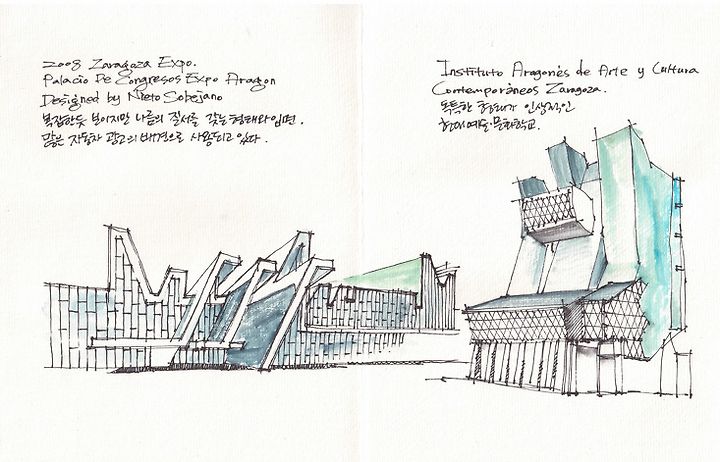 2008 Zaragoza Expo.
Palacio De Congresos Expo Aragon
Designed by Nieto Sobejano
복잡한듯 보이지만 나름의 질서를 갖는 형태와 입면.
많은 자동차 광고의 배경으로 사용되고 있다.
Instituto Aragonés de Arte y Cultura
Contemporáneos Zaragoza.
독특한 형태가 인상적인
현대예술·문화학교.